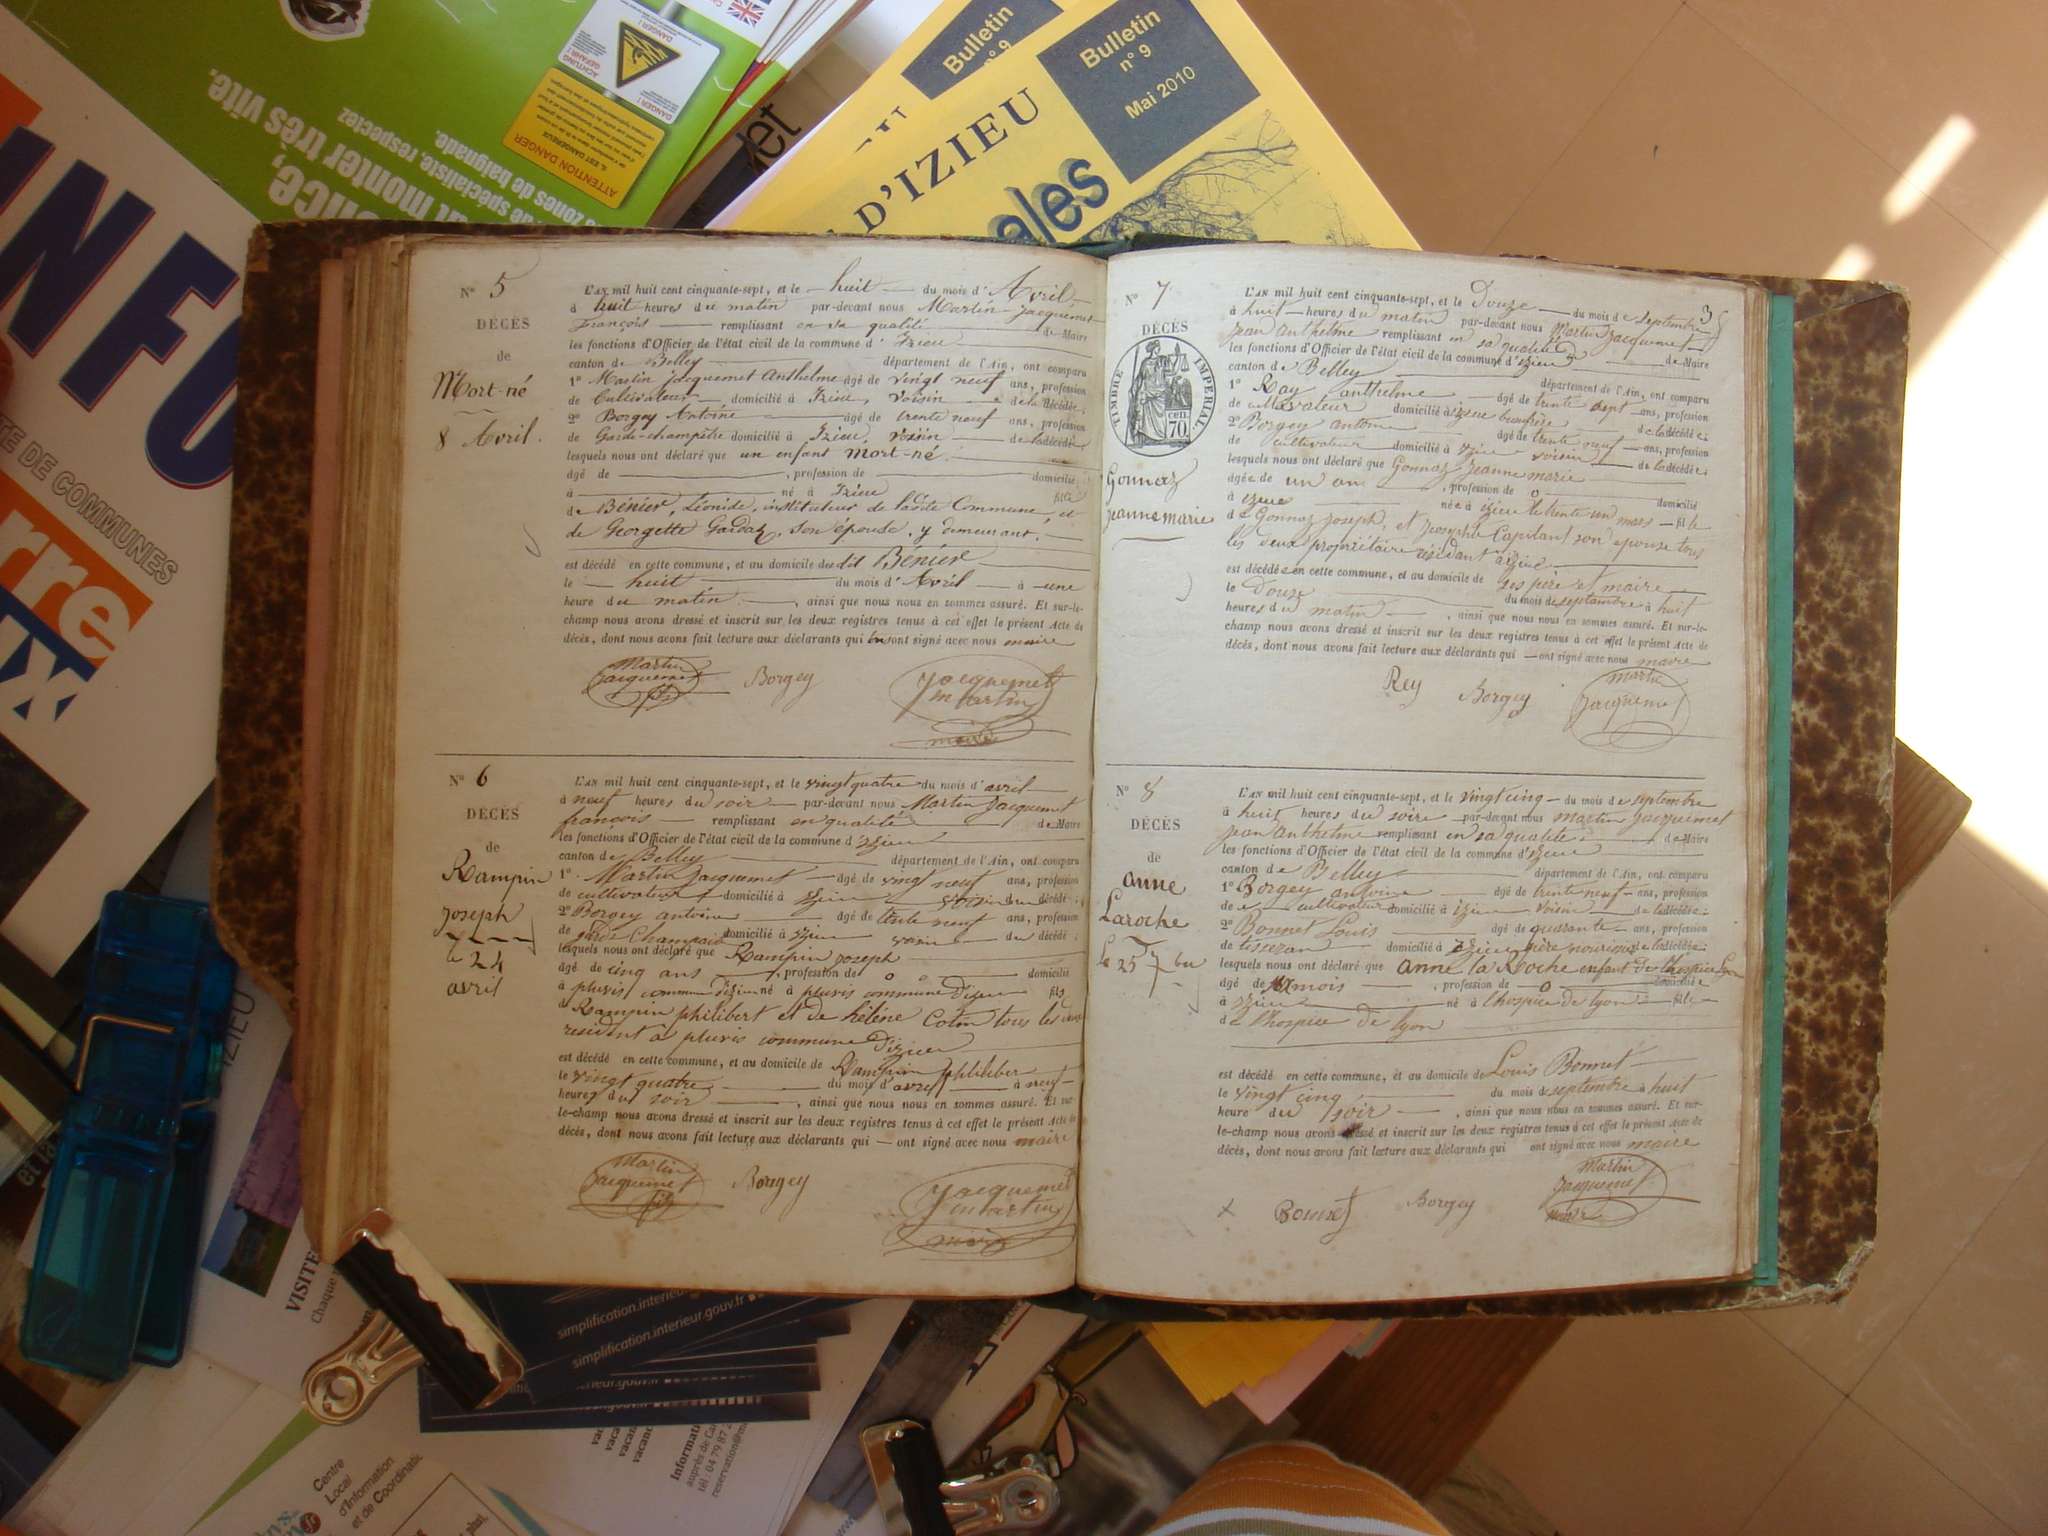 ACHTUNG GEFAHR !
DANGER !
ATTENTION DANGER
IL EST DANGEREUX
onze,
ut monter très vite.
que spécialiste, respectez
s zones de baignade.
INFO
TE DE COMMUNES
rre
ux
Bulletin
n° 9
Bulletin
n° 9
Mai 2010
D'IZIEU
ales
N° 5
DÉCÈS
de
Mort-né
8 Avril.
L'AN mil huit cent cinquante-sept, et le huit du mois d'Avril
à huit heures du matin par-devant nous Martin Jacquemet
François remplissant en sa qualité de Maire
les fonctions d'Officier de l'état civil de la commune d'Izieu
canton de Belley département de l'Ain, ont comparu
1° Martin Jacquemet Anthelme âgé de vingt neuf ans, profession
de Cultivateur domicilié à Izieu, voisin de la décédée;
2° Borgey Antoine âgé de trente neuf ans, profession
de Garde-champêtre domicilié à Izieu, voisin de la décédé
lesquels nous ont déclaré que un enfant mort-né
âgé de , profession de domicilié
à né à Izieu fils
de Bénier, Léonide, instituteur de ladite Commune, et
de Georgette Gaddaz, son épouse, y demeurant,
est décédé en cette commune, et au domicile du dit Bénier
le huit du mois d'Avril à une
heure du matin , ainsi que nous nous en sommes assuré. Et sur-le-
champ nous avons dressé et inscrit sur les deux registres tenus à cet effet le présent Acte de
décès, dont nous avons fait lecture aux déclarants qui ont signé avec nous maire
Martin
Jacquemet
fils
Borgey
Jacquemet
Martin
maire
N° 6
DÉCÈS
de
Rampin
Joseph
le 24
avril
L'AN mil huit cent cinquante-sept, et le vingt quatre du mois d'avril
à neuf heures du soir par-devant nous Martin Jacquemet
françois remplissant en qualité de Maire
les fonctions d'Officier de l'état civil de la commune d'izieu
canton de Belley département de l'Ain, ont comparu
1° Martin Jacquemet âgé de vingt neuf ans, profession
de cultivateur domicilié à izieu voisin du décédé;
2° Borgey antoine âgé de trente neuf ans, profession
de garde domicilié à izieu voisin du décédé;
lesquels nous ont déclaré que Rampin Joseph
âgé de cinq ans , profession de o o domicilié
à pluvis commune d'izieu né à pluvis commune d'izieu fils
d Rampin philibert et de hélène Cotin tous les deux
resident a pluvis commune d'izieu
est décédé en cette commune, et au domicile de Rampin philiber
le vingt quatre du mois d'avril à neuf
heures du soir , ainsi que nous nous en sommes assuré. Et sur-
le-champ nous avons dressé et inscrit sur les deux registres tenus à cet effet le présent Acte de
décès, dont nous avons fait lecture aux déclarants qui ont signé avec nous maire
Martin
Jacquemet
fils
Borgey
Jacquemet
martin
N° 7
DÉCÈS
TIMBRE IMPÉRIAL
cen. 70
Gonnaz
jeanne marie
3
L'AN mil huit cent cinquante-sept, et le Douze du mois de septembre
à huit heures du matin par-devant nous Martin Jacquemet
jean anthelme remplissant en sa qualité de Maire
les fonctions d'Officier de l'état civil de la commune d'izieu
canton de Belley département de l'Ain, ont comparu
1° Ray anthelme âgé de trente sept ans, profession
de cultivateur domicilié à izieu de la décédée;
2° Borgey antoine âgé de trente neuf ans, profession
de cultivateur domicilié à izieu voisin de la décédée;
lesquels nous ont déclaré que Gonnaz Jeanne marie
âgée de un an , profession de o domicilié
à izieu née à izieu le trente un mars fille
d e Gonnaz Joseph, et Josephte Capitant son epouse tous
les deux propriétaire résidant
est décédée en cette commune, et au domicile de ses père et maire
le Douze du mois de septembre à huit
heures du matin , ainsi que nous nous en sommes assuré. Et sur-le-
champ nous avons dressé et inscrit sur les deux registres tenus à cet effet le présent Acte de
décès, dont nous avons fait lecture aux déclarants qui ont signé avec nous maire
Rey
Borgey
martin
Jacquemet
N° 8
DÉCÈS
de
anne
Laroche
le 25 7bre
L'AN mil huit cent cinquante-sept, et le vingt cinq du mois de septembre
à huit heures du soire par-devant nous Martin Jacquemet
jean anthelme remplissant en sa qualité de Maire
les fonctions d'Officier de l'état civil de la commune d'izieu
canton de Belley département de l'Ain, ont comparu
1° Borgey antoine âgé de trente neuf ans, profession
de cultivateur domicilié à izieu voisin de la décédée;
2° Bonnet Louis âgé de quarante ans, profession
de tisseran domicilié à izieu père de la décédée;
lesquels nous ont déclaré que anne la Roche enfant de l'hospice Lyon
âgé de mois , profession de o domiciliée
à izieu né à l'hospice de lyon fille
d e l'hospice de lyon
est décédé en cette commune, et au domicile de Louis Bonnet
le vingt cinq du mois de septembre à huit
heure du soir , ainsi que nous nous en sommes assuré. Et sur-
le-champ nous avons dressé et inscrit sur les deux registres tenus à cet effet le présent Acte de
décès, dont nous avons fait lecture aux déclarants qui ont signé avec nous maire
Bonnet
Borgey
Martin
Jacquemet
maire
IZIEU
VISITE
Chaque
simplification.interieur.gouv.fr
simplification.interieur.gouv.fr
Informati
auprès de Ca
tél : 04 79 87 2
reservation@m
Centre
Local
d'Information
et de Coordinatio